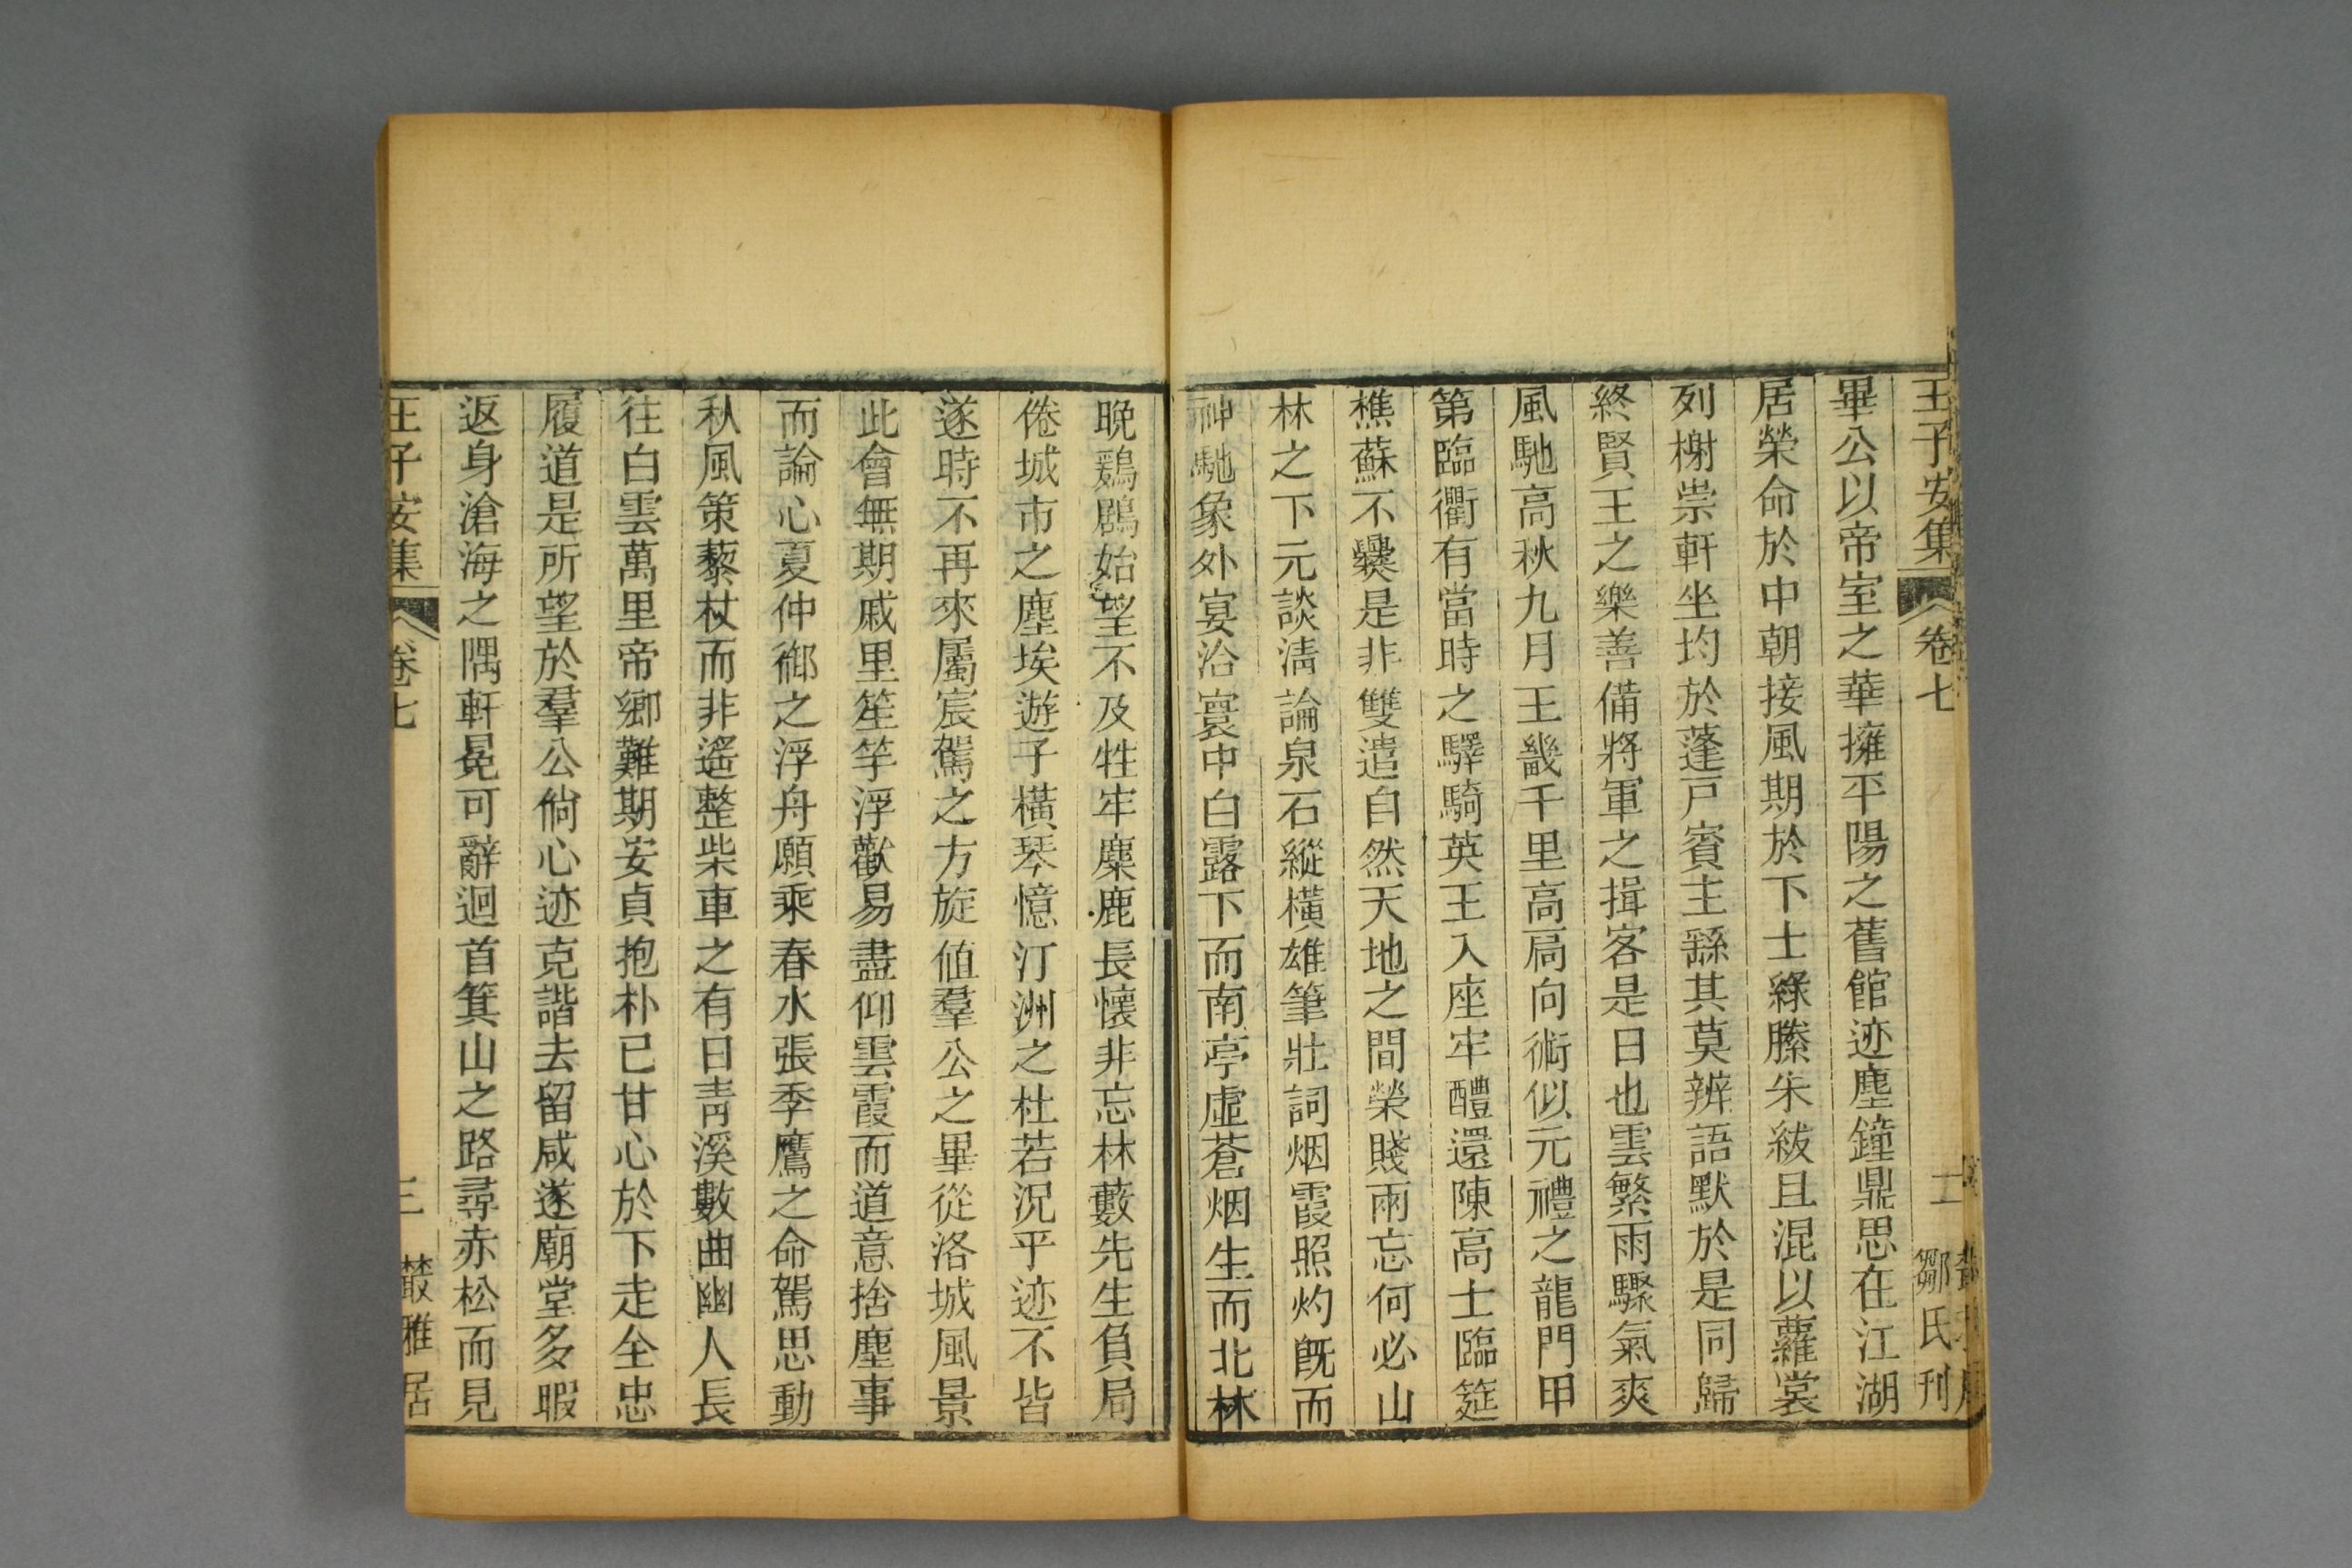 王子安集 卷七 二 鄒氏刊
畢公以帝室之華擁平陽之舊館迹塵鐘鼎思在江湖
居榮命於中朝接風期於下士綠縢朱紱且混以蘿裳
列榭崇軒坐均於蓬戸賓主繇其莫辨語默於是同歸
終賢王之樂善備將軍之揖客是日也雲繁雨驟氣爽
風馳高秋九月王畿千里高扃向術似元禮之龍門甲
第臨衢有當時之驛騎英王入座牢醴還陳高士臨筵
樵蘇不爨是非雙遣自然天地之間榮賤兩忘何必山
林之下元談清論泉石縱橫雄筆壯詞烟霞照灼旣而
神馳象外宴洽寰中白露下而南亭虛蒼烟生而北林
晚鷄鶋始望不及牲牢麋鹿長懷非忘林藪先生負局
倦城市之塵埃遊子橫琴憶汀洲之杜若況乎迹不皆
遂時不再來屬宸駕之方旋值羣公之畢從洛城風景
此會無期戚里笙竽浮歡易盡仰雲霞而道意捨塵事
而論心夏仲御之浮舟願乘春水張季鷹之命駕思動
秋風策藜杖而非遙整柴車之有日靑溪數曲幽人長
往白雲萬里帝鄉難期安貞抱朴已甘心於下走全忠
履道是所望於羣公倘心迹克諧去留咸遂廟堂多暇
返身滄海之隅軒冕可辭迴首箕山之路尋赤松而見
王子安集 卷七 三 叢雅居